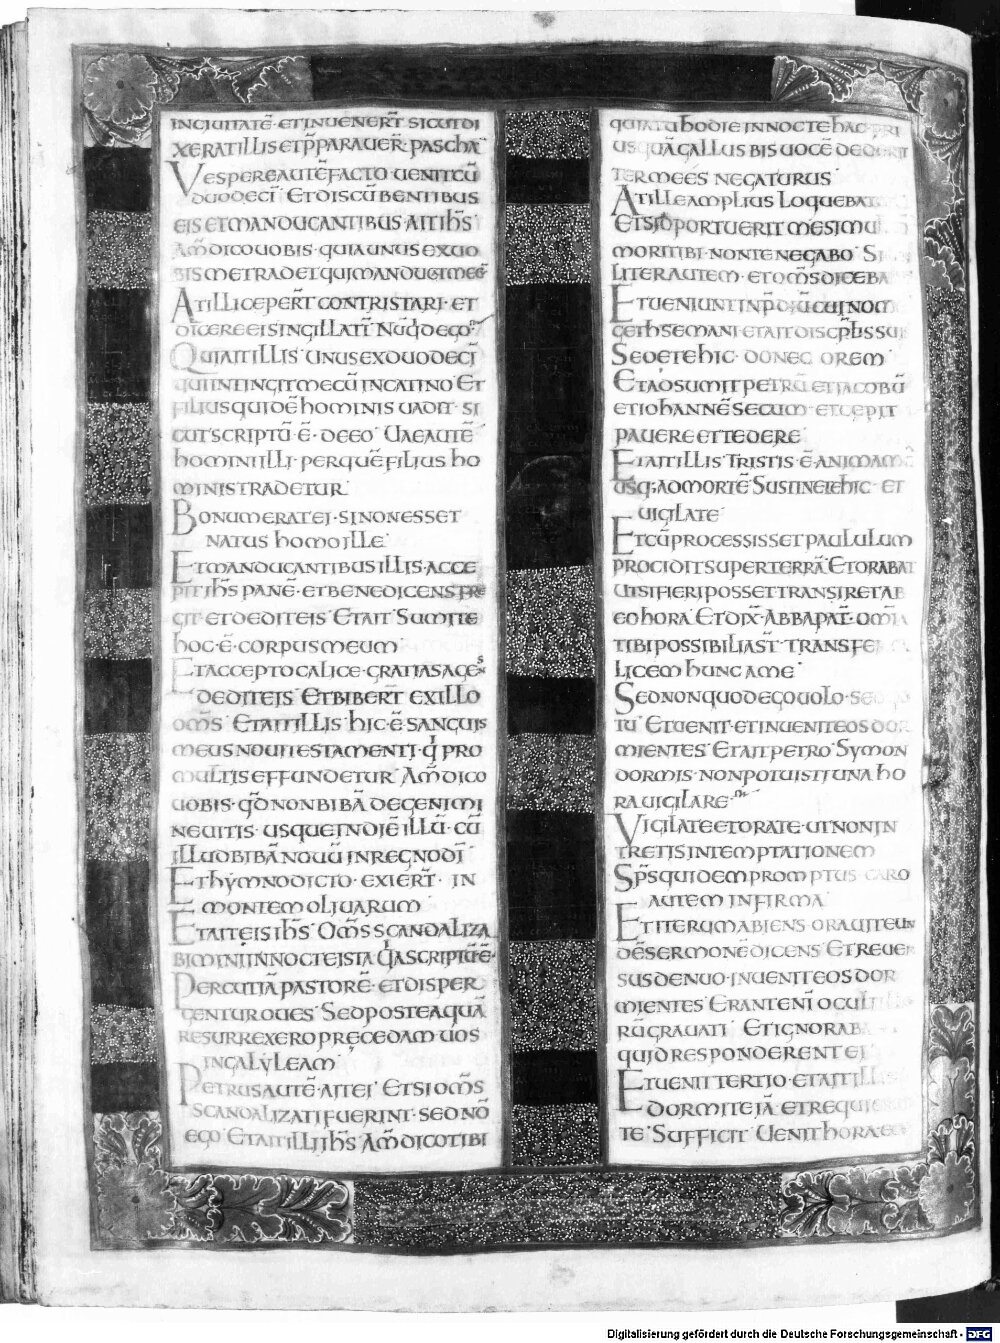 INCIUITATĒ· ETINUENER̄T SICUTDI
XERATILLIS ETP̄PARAUER̄· PASCHA
VESPEREAUTĒFACTO UENITCŪ
DUODECĪ· ETDISCŪBENTIBUS
EIS ETMANDUCANTIBUS· AITIHS̄
AM̄DICOUOBIS· QUIAUNUS EXUO
BIS METRADET· QUIMANDUCATMECŪ
ATILLICEPER̄T CONTRISTARI· ET
DICEREEISINGILLATĪ· NŪQ̄DEGO·
QUIAITILLIS· UNUSEXDUODECĪ
QUIINTINGITMECŪ INCATINO· ET
FILIUSQUIDĒ HOMINIS UADIT· SI
CUTSCRIPTŪ Ē· DEEO· UAEAUTĒ
HOMINIILLI· PERQUĒFILIUS HO
MINISTRADETUR·
BONUMERATEI· SINONESSET
NATUS HOMOILLE·
ETMANDUCANTIBUSILLIS· ACCE
PITIHS̄ PANĒ· ETBENEDICENSFRE
GIT ETDEDITEIS· ETAIT· SUMITE
HOC· Ē· CORPUSMEUM·
ETACCEPTOCALICE· GRATIASAGENS
DEDITEIS· ETBIBER̄T EXILLO
OMS̄· ETAITILLIS· HIC· Ē· SANGUIS
MEUS NOUITESTAMENTI· Q̄ PRO
MULTIS EFFUNDETUR· AM̄DICO
UOBIS· QD̄NONBIBĀ DEGENIMI
NEUITIS· USQUEINDIĒILLŪ· CŪ
ILLUDBIBĀNOUŪ INREGNODĪ·
ETHYMNODICTO· EXIER̄T· IN
MONTEMOLIUARUM·
ETAITEIS IHS̄· OMS̄SCANDALIZA
BIMINIINNOCTEISTA· Q̄IASCRIPTŪĒ·
PERCUTIĀPASTORĒ· ETDISPER
GENTUROUES· SEDPOSTEAQUĀ
RESURREXERO PRECEDAM UOS
INGALYLEAM·
PETRUSAUTĒ· AITEI· ETSIOMS̄
SCANDALIZATIFUERINT· SEDNŌ
EGO· ETAITILLIIHS̄· AM̄DICOTIBI
QUIATUHODIEINNOCTEHAC· PRI
USQUĀGALLUS BISUOCĒ DEDERIT
TERMEES NEGATURUS·
ATILLEAMPLIUS LOQUEBAT
ETSIOPORTUERIT MESIMU
MORITIBI· NONTENEGABO· SI
LITERAUTEM· ETOMS̄DICEBA
ETUENIUNTINP̄DIŪCUINOM
GETHSEMANI· ETAITDISCP̄LISSUI
SEDETEHIC· DONEC OREM·
ETADSUMITPETRŪ· ETIACOBŪ
ETIOHANNĒSECUM· ETCEPIT
PAUERE ETTEDERE·
ETAITILLIS· TRISTIS· Ē· ANIMAM
USQ;ADMORTĒ· SUSTINETEHIC· ET
UIGILATE·
ETCŪPROCESSISSETPAULULUM
PROCIDITSUPERTERRĀ· ETORABAT
UTSIFIERIPOSSETTRANSIRETAB
EOHORA· ETDIX̄· ABBAPAT̄· OMĪA
TIBIPOSSIBILIAST̄· TRANSFER
LICEM HUNC AME·
SEDNONQUODEGOUOLO· SED
TU· ETUENIT· ETINUENITEOS DOR
MIENTES· ETAITPETRO· SYMON
DORMIS· NONPOTUISTIUNA HO
RAUIGILARE·
VIGILATEETORATE· UTNONIN
TRETISINTEMPTATIONEM
SPS̄QUIDEMPROMPTUS· CARO
AUTEM INFIRMA·
ETITERUMABIENS· ORAUITEUN
DĒSERMONĒ DICENS· ETREUER
SUSDENUO· INUENITEOS DOR
MIENTES· ERANTENĪ OCULI
RŪGRAUATI· ETIGNORABA
QUIDRESPONDERENT EI·
ETUENITTERTIO· ETAITILLIS
DORMITEIĀ· ETREQUIES
TE· SUFFICIT· UENITHORAEC
Digitalisierung gefördert durch die Deutsche Forschungsgemeinschaft - DFG